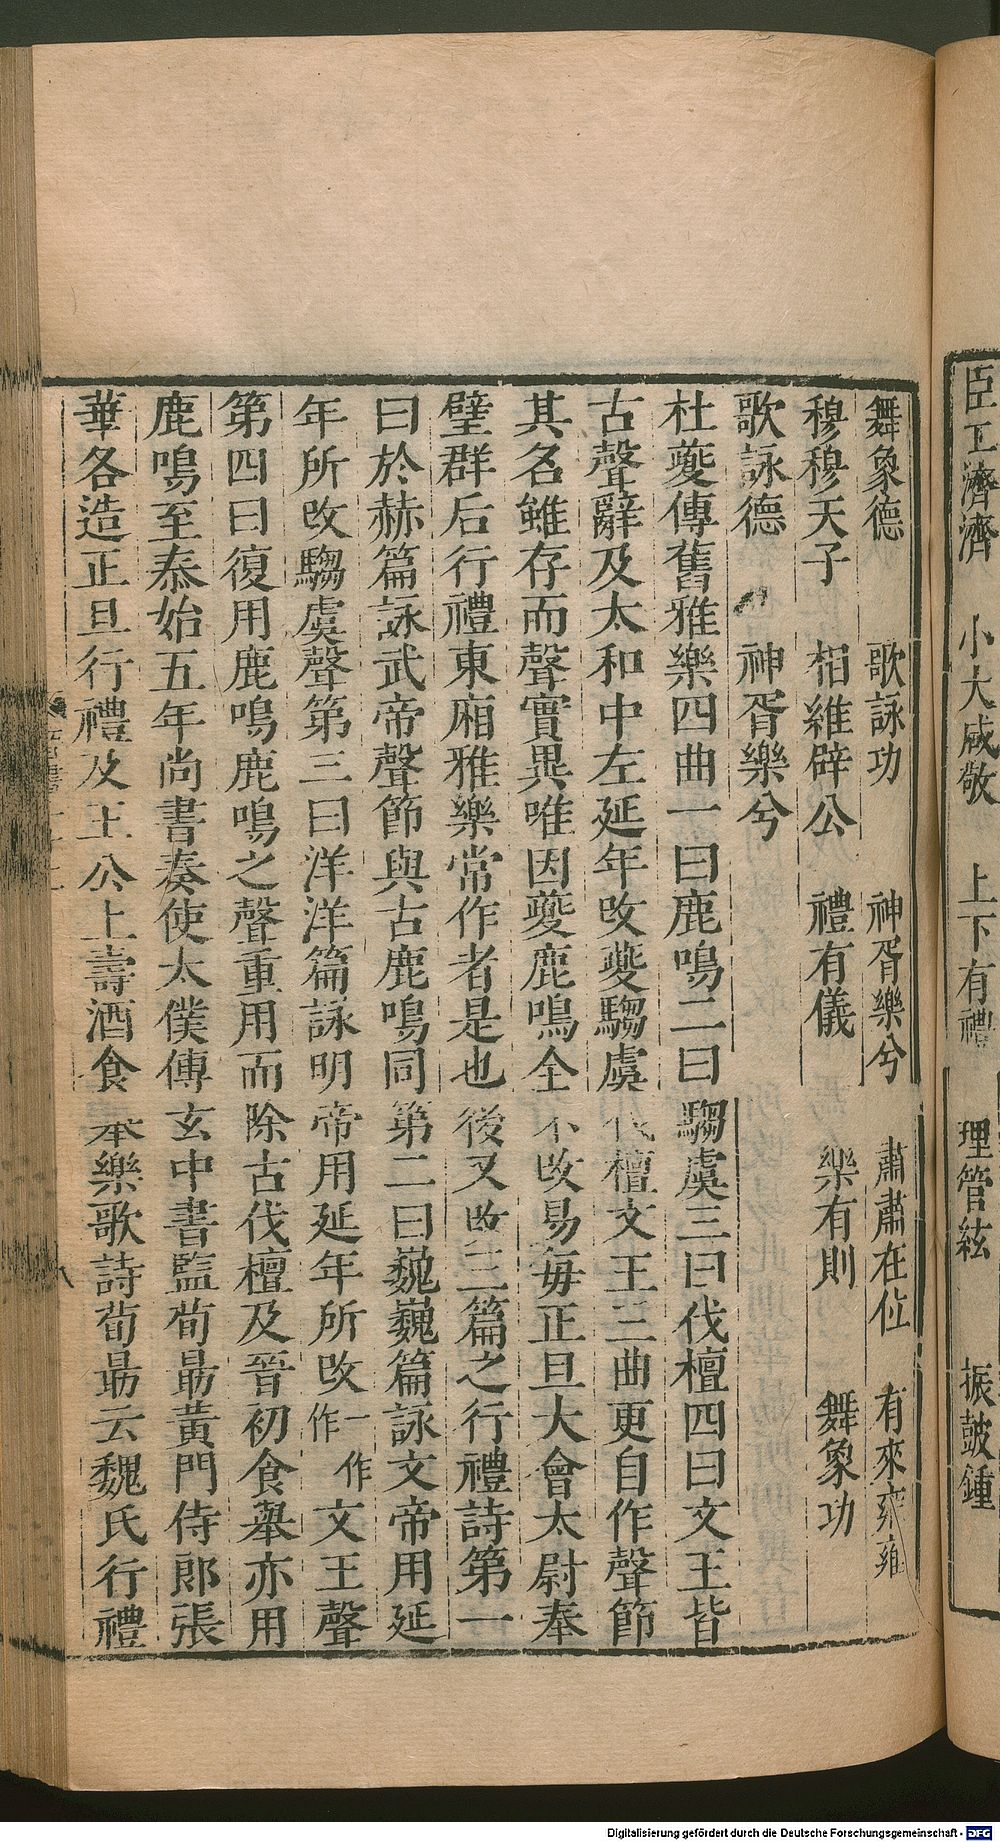 臣工濟濟　小大咸敬　上下有禮　理管絃　振鼓鍾
舞象德　歌詠功　神胥樂兮　肅肅在位　有來雍雍
穆穆天子　相維辟公　禮有儀　樂有則　舞象功
歌詠德　神胥樂兮
杜夔傳舊雅樂四曲一曰鹿鳴二曰騶虞三曰伐檀四曰文王皆
古聲辭及太和中左延年改夔騶虞伐檀文王三曲更自作聲節
其名雖存而聲實異唯因夔鹿鳴全不改易每正旦大會太尉奉
璧群后行禮東廂雅樂常作者是也後又改三篇之行禮詩第一
曰於赫篇詠武帝聲節與古鹿鳴同第二曰巍巍篇詠文帝用延
年所改騶虞聲第三曰洋洋篇詠明帝用延年所改一作作文王聲
第四曰復用鹿鳴鹿鳴之聲重用而除古伐檀及晉初食舉亦用
鹿鳴至泰始五年尚書奏使太僕傅玄中書監荀勗黃門侍郎張
華各造正旦行禮及王公上壽酒食舉樂歌詩荀勗云魏氏行禮
Digitalisierung gefördert durch die Deutsche Forschungsgemeinschaft - DFG